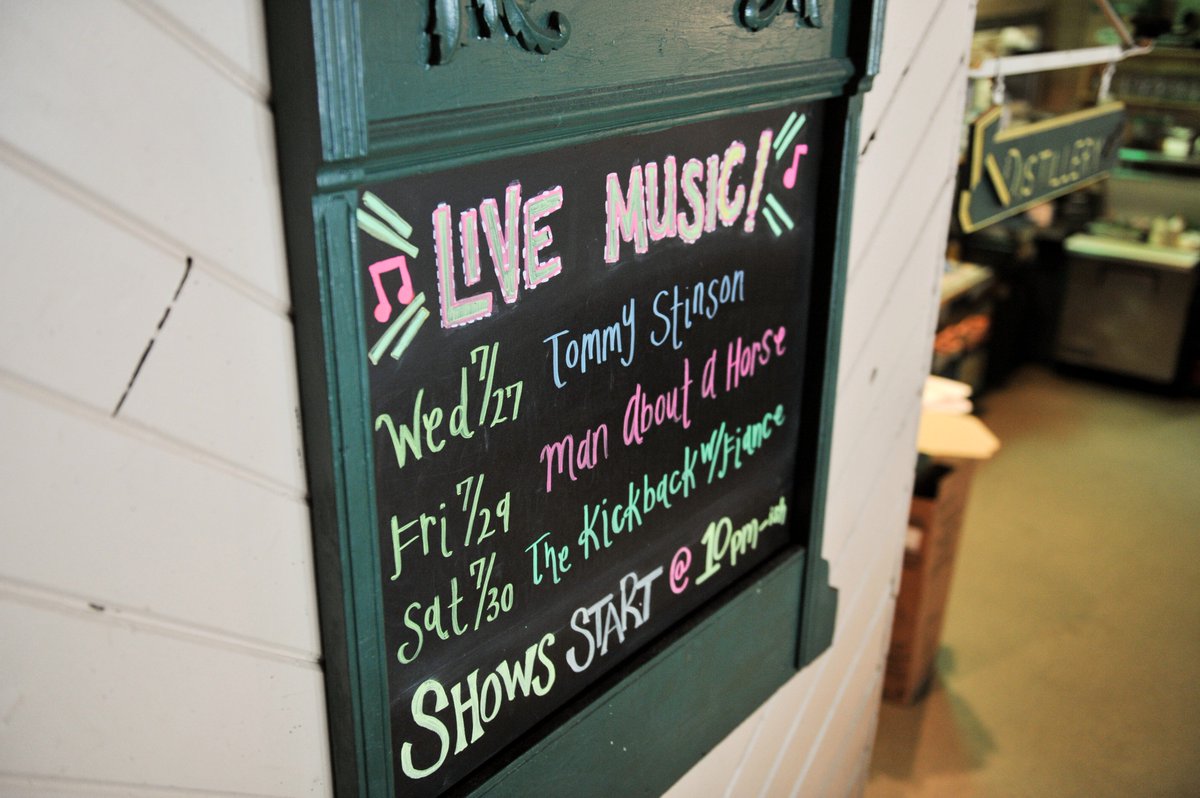 LIVE MUSIC!
Wed 7/27 Tommy Stinson
Fri 7/29 Man About a Horse
Sat 7/30 The Kickback w/Fiance
SHOWS START @ 10pm-ish
DISTILLERY